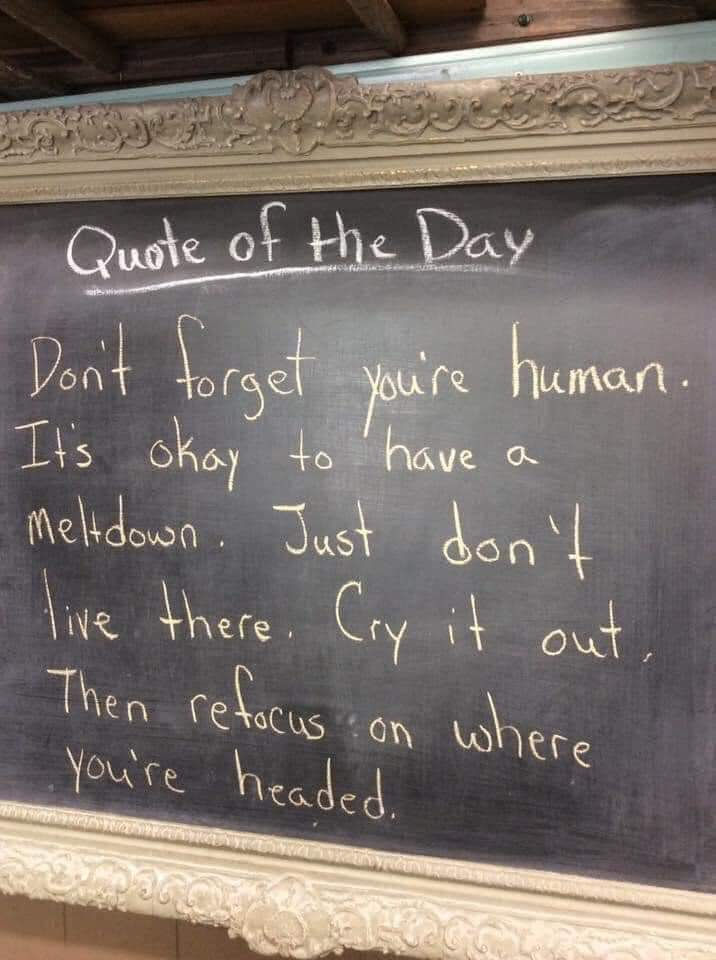 Quote of the Day
Don't forget you're human.
It's okay to have a
meltdown. Just don't
live there. Cry it out.
Then refocus on where
you're headed.